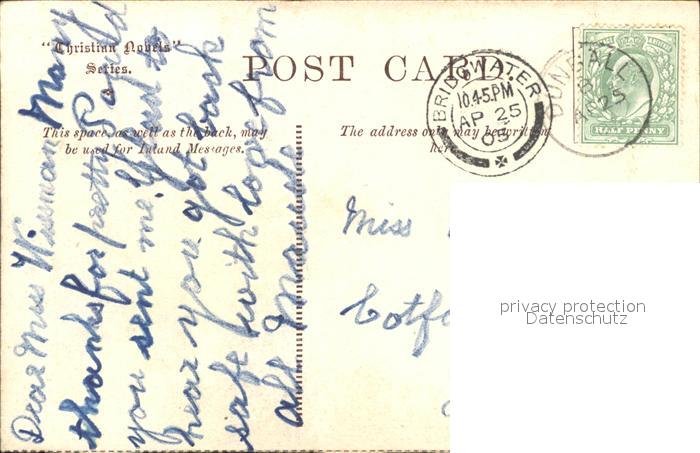 "Christian Novels"
Series.
POST CARD.
This space, as well as the back, may
be used for Inland Messages.
The address only may be written
here.
BRIDGWATER
10.45.PM
AP 25
05
DUNBALL
AP 25
HALF PENNY
Dear Miss Wiseman Many
thanks for pretty Card
you sent me. Glad to
hear you got back
safe with love from
all Maude
Miss
Cotf
privacy protection
Datenschutz